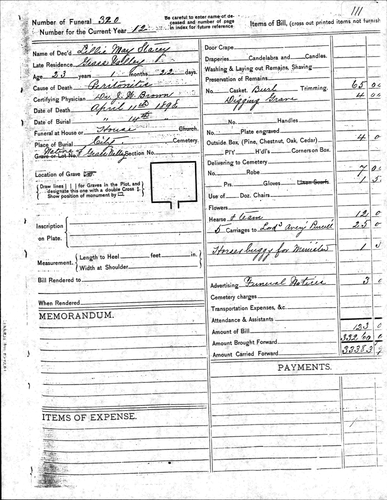 111
Number of Funeral 320
Number for the Current Year 12
Be carefu to enter name of deceased and number of page in index for future reference
Items of Bill, (cross out printed items not furnish
Name of Dec'd Lillie May Stacey
Late Residence Grass Valley
Age 23 years 1 months 22 days
Cause of Death Peritonitis
Certifying Physician Dr. Brown
Date of Death April 11th 1898
Date of Burial " 14th
Funeral at House or House Church
Place of Burial City Cemetery.
Grave or Lot No. Native of Grass Valley Section No.
Location of Grave
Draw lines for Graves in the Plot, and designate this one with a double Grave Show position of monument by
Inscription on Plate.
Measurement, Length to Heel feet in.
Width at Shoulder
Bill Rendered to
When Rendered
MEMORANDUM.
ITEMS OF EXPENSE.
Door Crape
Draperies Candelabra and Candles
Washing & Laying out Remains, Shaving
Preservation of Remains
No. Casket Burl Trimming 65 0
Digging Grave 4 0
No. Handles
Plate engraved
Outside Box (Pine, Chestnut, Oak, Cedar) 4 0
P'l'v H'd'l's Corners on Box
Delivering to Cemetery
No. Robe 7 0
Prs Gloves 1 5
Use of Doz. Chairs
Flowers
Hearse & team 12 0
5 Carriages to 25 0
Horse & buggy for Minister 1
Advertising Funeral Notices 3
Cemetery charges
Transportation Expenses, &c
Attendance & Assistants
Amount of Bill 123 0
Amount Brought Forward
Amount Carried Forward
PAYMENTS.